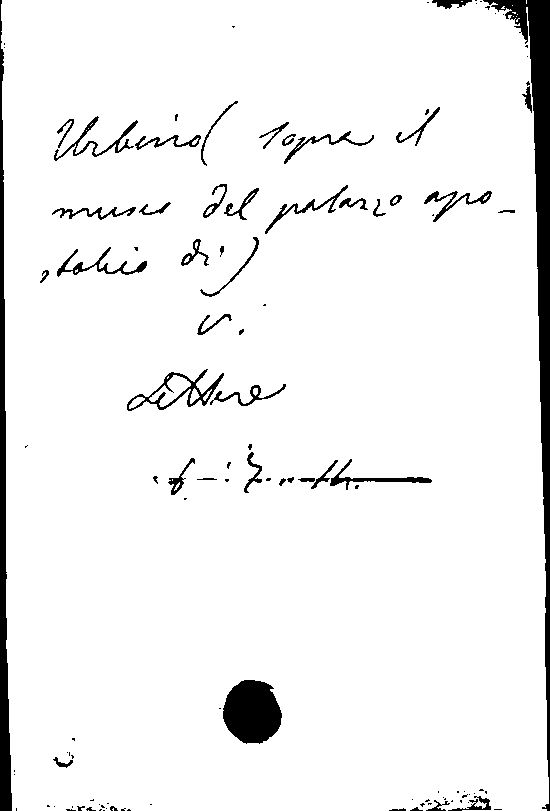 Urbino (sopra il
museo del palazzo apo-
stolico di)
v.
Lettere